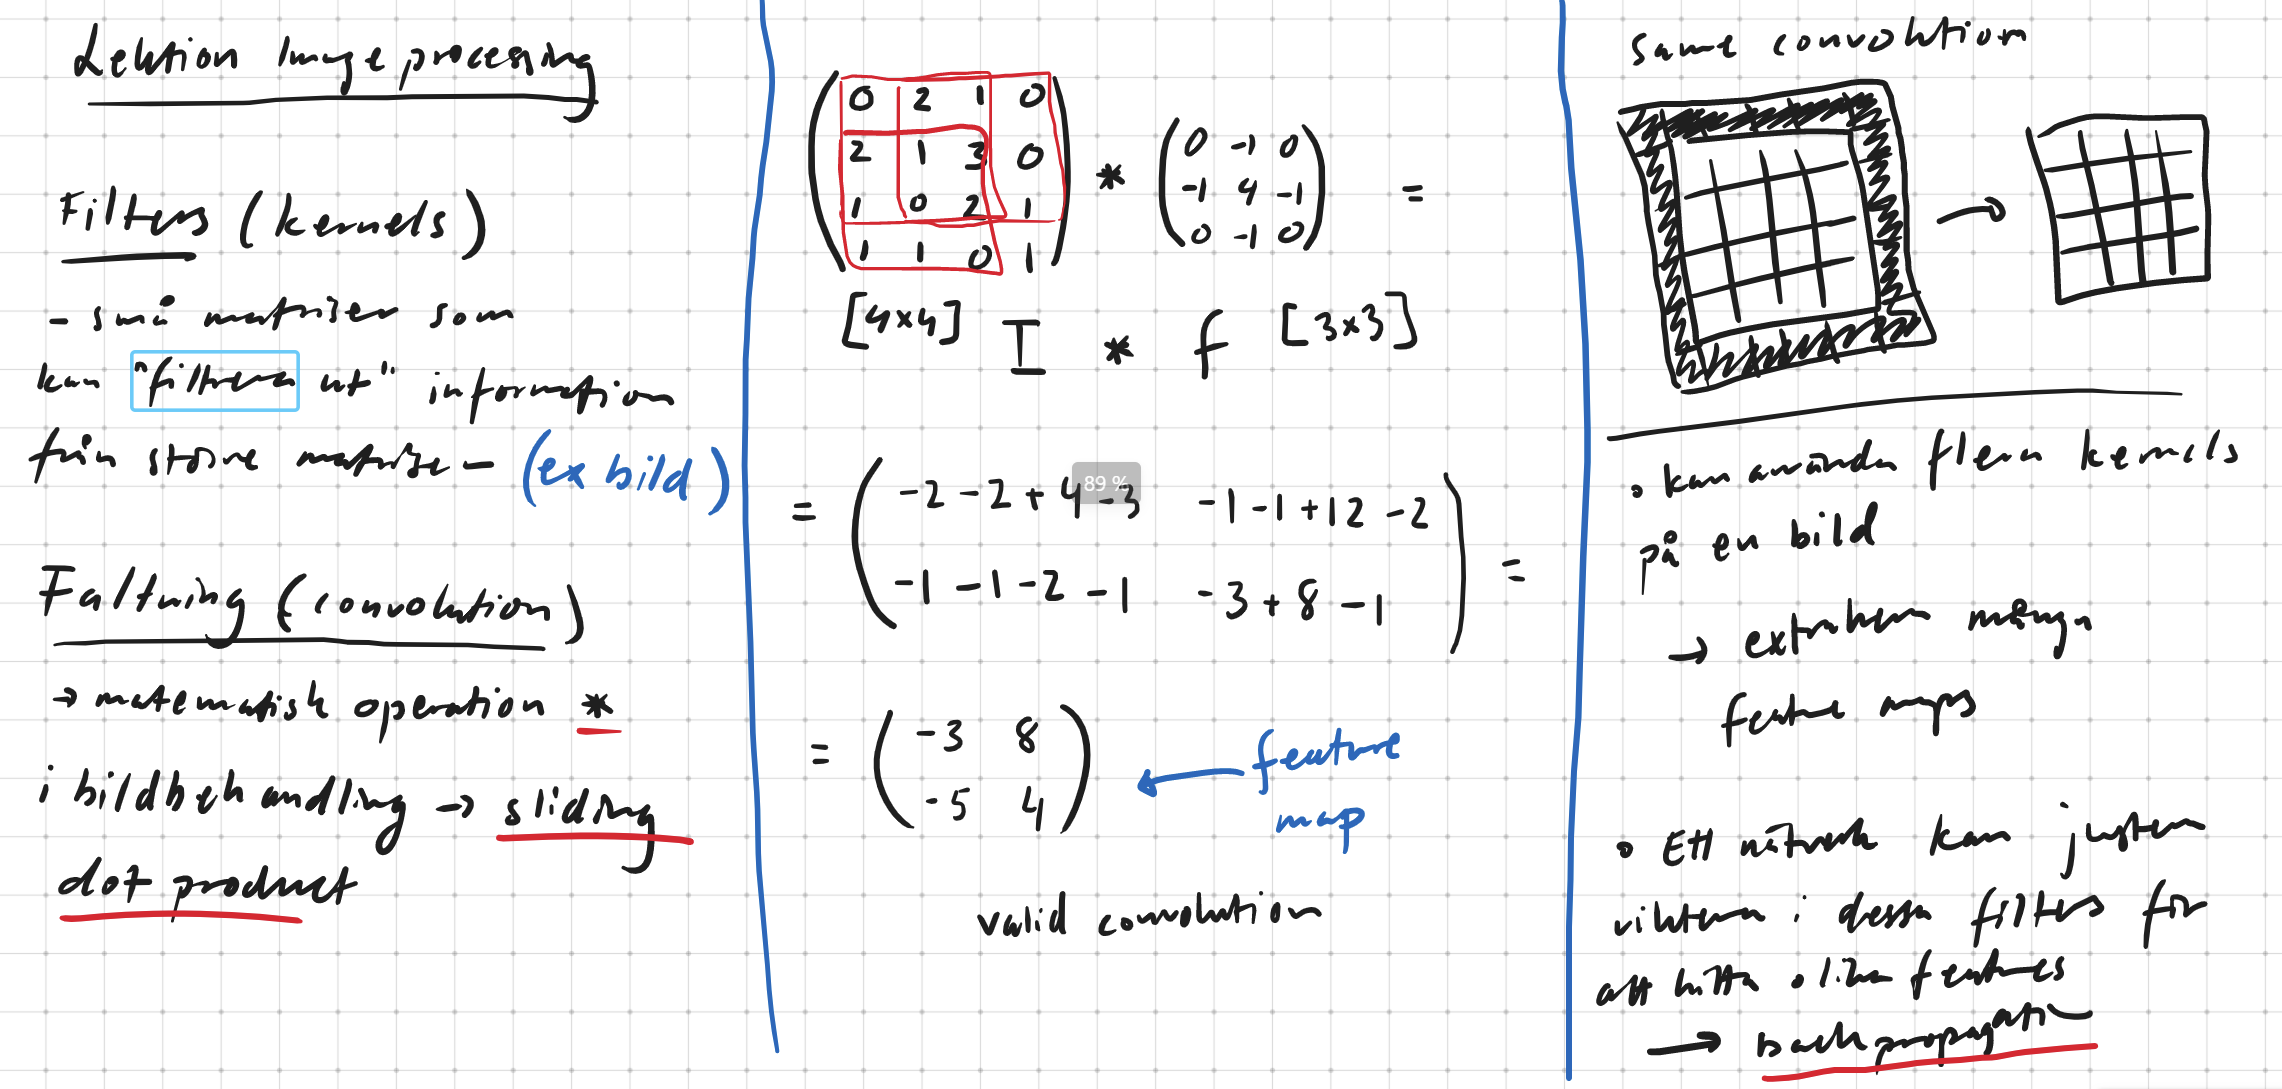 Lektion Image processing
Filters (kernels)
- små matriser som
kan "filtrera ut" information
från större matriser (ex bild)
Faltning (convolution)
→ matematisk operation *
i bildbehandling → sliding
dot product
0 2 1 0
2 1 3 0
1 0 2 1
1 1 0 1
*
0 -1 0
-1 4 -1
0 -1 0
=
[4x4] I * f [3x3]
= -2 -2 + 4 -3 -1 -1 +12 -2
-1 -1 -2 -1 -3 + 8 -1 =
89 %
= -3 8
-5 4
← feature
map
valid convolution
same convolution
→
• kan använda flera kernels
på en bild
→ extrahera många
feature maps
• Ett nätverk kan justera
vikterna i dessa filters för
att hitta olika features
→ backpropagation